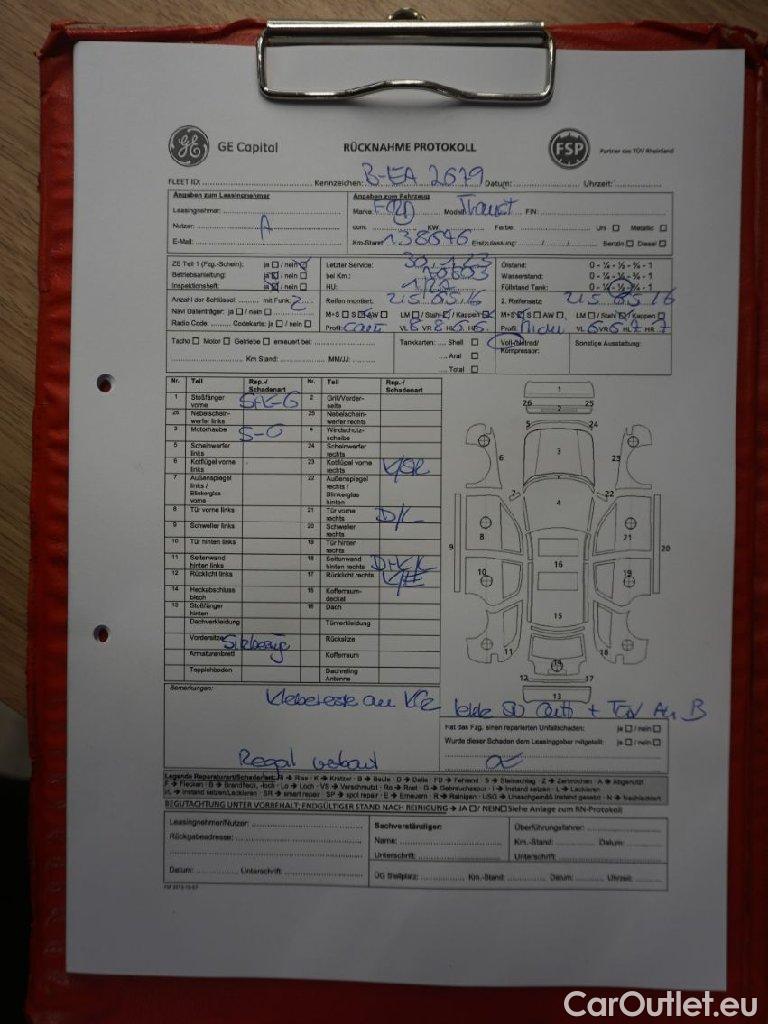 GE Capital RÜCKNAHME PROTOKOLL FSP Partner des TÜV Rheinland
FLEET ID: Kennzeichen: B-EA 2679 Datum: Uhrzeit:
Angaben zum Leasingnehmer
Leasingnehmer:
Nutzer: A
E-Mail:
Angaben zum Fahrzeug
Marke: FORD Modell: Transit FIN:
ccm: KW: Farbe: Uni Metallic
Km-Stand: 138646 Erstzulassung: / / Benzin Diesel
ZE Teil 1 (Fzg.-Schein): ja / nein
Betriebsanleitung: ja / nein
Inspektionsheft: ja / nein
Anzahl der Schlüssel: mit Funk: 2
Navi Datenträger: ja / nein
Radio Code: Codekarte: ja / nein
Letzter Service:
bei Km:
HU:
Reifen montiert: 215 65 16
M+S S AW LM / Stahl / Kappen
Profil: VL 8 VR 8 HL 6 HR 6
Ölstand: 0 - ¼ - ½ - ¾ - 1
Wasserstand: 0 - ¼ - ½ - ¾ - 1
Füllstand Tank: 0 - ¼ - ½ - ¾ - 1
2. Reifensatz: 215 65 16
M+S S AW LM / Stahl / Kappen
Profil: VL 6 VR 6 HL 7 HR 7
Tacho Motor Getriebe erneuert bei:
Km Stand: MN/JJ:
Tankkarten: Shell
Aral
Total
Voll-/Notrad/
Kompressor:
Sonstige Ausstattung:
Nr. Teil Rep.-/ Schadenart Nr. Teil Rep.-/ Schadenart
1 Stoßfänger vorne 2 Grill/Vorderseite
26 Nebelscheinwerfer links 25 Nebelscheinwerfer rechts
3 Motorhaube S-G 4 Windschutzscheibe
5 Scheinwerfer links 24 Scheinwerfer rechts
6 Kotflügel vorne links 23 Kotflügel vorne rechts
7 Außenspiegel links / Blinkerglas vorne 22 Außenspiegel rechts / Blinkerglas hinten
8 Tür vorne links 21 Tür vorne rechts D/K
9 Schweller links 20 Schweller rechts
10 Tür hinten links 19 Tür hinten rechts
11 Seitenwand hinten links 18 Seitenwand hinten rechts
12 Rücklicht links 17 Rücklicht rechts
14 Heckabschlussblech 15 Kofferraumdeckel
13 Stoßfänger hinten 16 Dach
Dachverkleidung Türverkleidung
Vordersitze Sitzbezüge Rücksitze
Armaturenbrett Kofferraum
Teppichboden Dachreling Antenne
1
26 25
2
5 24
3
6 23
7 22
4
8 21
9 20
16
10 19
15
11 18
14
12 17
13
Bemerkungen:
Klebereste am Kfz
Regal verbaut
Hat das Fzg. einen reparierten Unfallschaden: ja / nein
Wurde dieser Schaden dem Leasinggeber mitgeteilt: ja / nein
Legende Reparaturart/Schadenart: R → Riss - K → Kratzer - B → Beule - D → Delle - FD → Fehlend - S → Steinschlag - Z → Zerbrochen - A → Abgenutzt
BEGUTACHTUNG UNTER VORBEHALT; ENDGÜLTIGER STAND NACH REINIGUNG → JA / NEIN Siehe Anlage zum RN-Protokoll
Leasingnehmer/Nutzer:
Rückgabeadresse:
Datum: Unterschrift:
Sachverständiger:
Name:
Unterschrift:
Überführungsfahrer:
Km.-Stand: Datum:
Unterschrift:
ÜG Stellplatz: Km.-Stand: Datum: Uhrzeit:
CarOutlet.eu